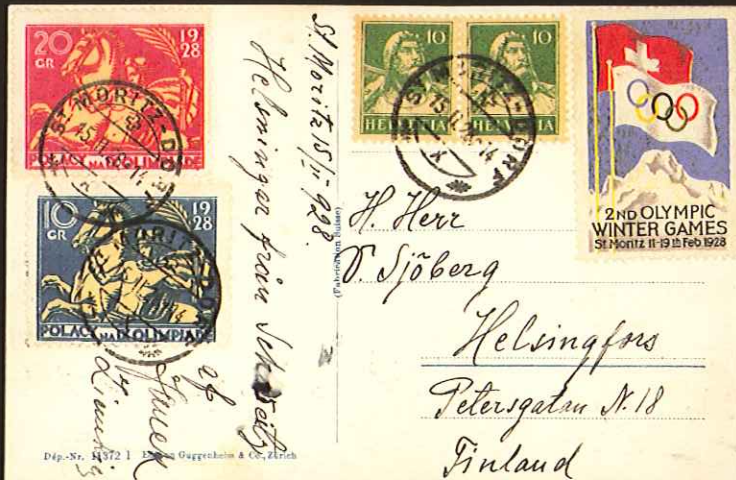 20 GR 1928
POLACY NA IX OLIMPIADĘ
10 GR 1928
POLACY NA IX OLIMPIADĘ
ST. MORITZ-DORF
15.II.28-14
St. Moritz 15/II 1928.
Helsningar från Schweiz
af
Dép.-Nr. 11372 I Edition Guggenheim & Co., Zürich
(Fabrication Suisse)
10 10
HELVETIA HELVETIA
ST. MORITZ-DORF
2ND OLYMPIC
WINTER GAMES
St. Moritz 11-19th Feb 1928
H. Herr
Sjöberg
Helsingfors
Petersgatan N. 18
Finland